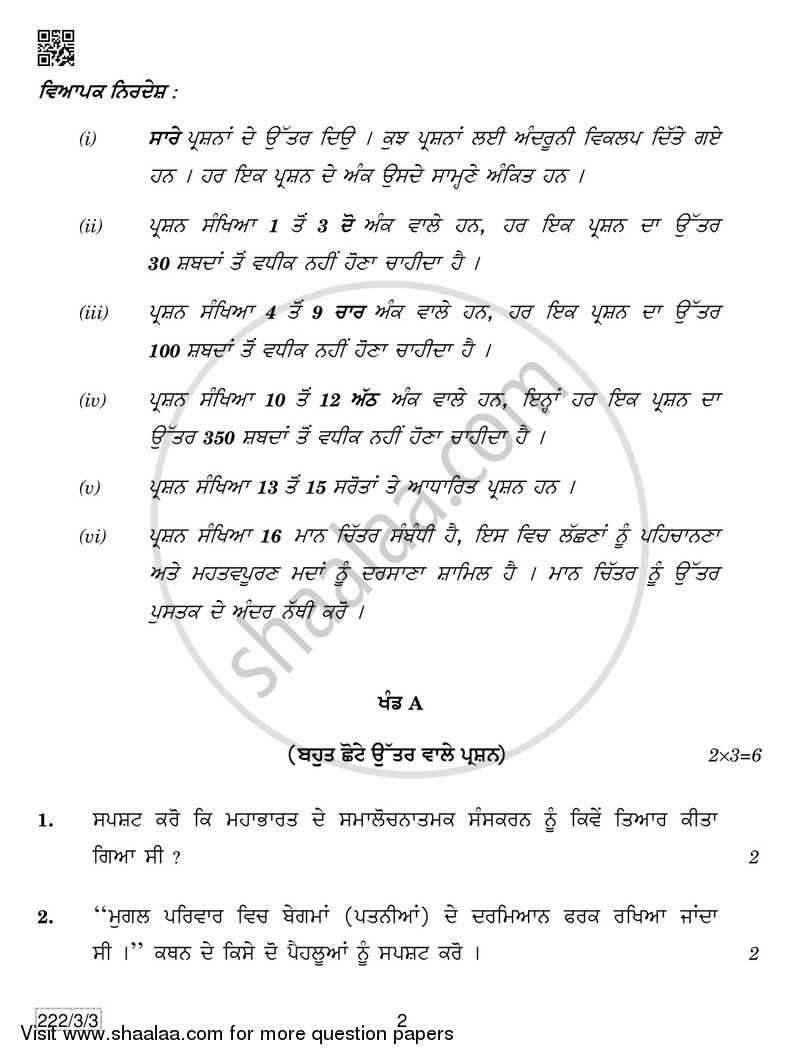 ਵਿਆਪਕ ਨਿਰਦੇਸ਼ :
(i) ਸਾਰੇ ਪ੍ਰਸ਼ਨਾਂ ਦੇ ਉੱਤਰ ਦਿਉ । ਕੁਝ ਪ੍ਰਸ਼ਨਾਂ ਲਈ ਅੰਦਰੂਨੀ ਵਿਕਲਪ ਦਿੱਤੇ ਗਏ
ਹਨ । ਹਰ ਇਕ ਪ੍ਰਸ਼ਨ ਦੇ ਅੰਕ ਉਸਦੇ ਸਾਮ੍ਹਣੇ ਅੰਕਿਤ ਹਨ ।
(ii) ਪ੍ਰਸ਼ਨ ਸੰਖਿਆ 1 ਤੋਂ 3 ਦੋ ਅੰਕ ਵਾਲੇ ਹਨ, ਹਰ ਇਕ ਪ੍ਰਸ਼ਨ ਦਾ ਉੱਤਰ
30 ਸ਼ਬਦਾਂ ਤੋਂ ਵਧੀਕ ਨਹੀਂ ਹੋਣਾ ਚਾਹੀਦਾ ਹੈ ।
(iii) ਪ੍ਰਸ਼ਨ ਸੰਖਿਆ 4 ਤੋਂ 9 ਚਾਰ ਅੰਕ ਵਾਲੇ ਹਨ, ਹਰ ਇਕ ਪ੍ਰਸ਼ਨ ਦਾ ਉੱਤਰ
100 ਸ਼ਬਦਾਂ ਤੋਂ ਵਧੀਕ ਨਹੀਂ ਹੋਣਾ ਚਾਹੀਦਾ ਹੈ ।
(iv) ਪ੍ਰਸ਼ਨ ਸੰਖਿਆ 10 ਤੋਂ 12 ਅੱਠ ਅੰਕ ਵਾਲੇ ਹਨ, ਇਨ੍ਹਾਂ ਹਰ ਇਕ ਪ੍ਰਸ਼ਨ ਦਾ
ਉੱਤਰ 350 ਸ਼ਬਦਾਂ ਤੋਂ ਵਧੀਕ ਨਹੀਂ ਹੋਣਾ ਚਾਹੀਦਾ ਹੈ ।
(v) ਪ੍ਰਸ਼ਨ ਸੰਖਿਆ 13 ਤੋਂ 15 ਸਰੋਤਾਂ ਤੇ ਆਧਾਰਿਤ ਪ੍ਰਸ਼ਨ ਹਨ ।
(vi) ਪ੍ਰਸ਼ਨ ਸੰਖਿਆ 16 ਮਾਨ ਚਿੱਤਰ ਸੰਬੰਧੀ ਹੈ, ਇਸ ਵਿਚ ਲੱਛਣਾਂ ਨੂੰ ਪਹਿਚਾਨਣਾ
ਅਤੇ ਮਹਤਵਪੂਰਣ ਮਦਾਂ ਨੂੰ ਦਰਸਾਣਾ ਸ਼ਾਮਿਲ ਹੈ । ਮਾਨ ਚਿੱਤਰ ਨੂੰ ਉੱਤਰ
ਪੁਸਤਕ ਦੇ ਅੰਦਰ ਨੱਥੀ ਕਰੋ ।
shaalaa.com
ਖੰਡ A
(ਬਹੁਤ ਛੋਟੇ ਉੱਤਰ ਵਾਲੇ ਪ੍ਰਸ਼ਨ) 2×3=6
1. ਸਪਸ਼ਟ ਕਰੋ ਕਿ ਮਹਾਭਾਰਤ ਦੇ ਸਮਾਲੋਚਨਾਤਮਕ ਸੰਸਕਰਨ ਨੂੰ ਕਿਵੇਂ ਤਿਆਰ ਕੀਤਾ
ਗਿਆ ਸੀ ? 2
2. “ਮੁਗਲ ਪਰਿਵਾਰ ਵਿਚ ਬੇਗਮਾਂ (ਪਤਨੀਆਂ) ਦੇ ਦਰਮਿਆਨ ਫਰਕ ਰਖਿਆ ਜਾਂਦਾ
ਸੀ ।” ਕਥਨ ਦੇ ਕਿਸੇ ਦੋ ਪੈਹਲੂਆਂ ਨੂੰ ਸਪਸ਼ਟ ਕਰੋ । 2
222/3/3 2
Visit www.shaalaa.com for more question papers